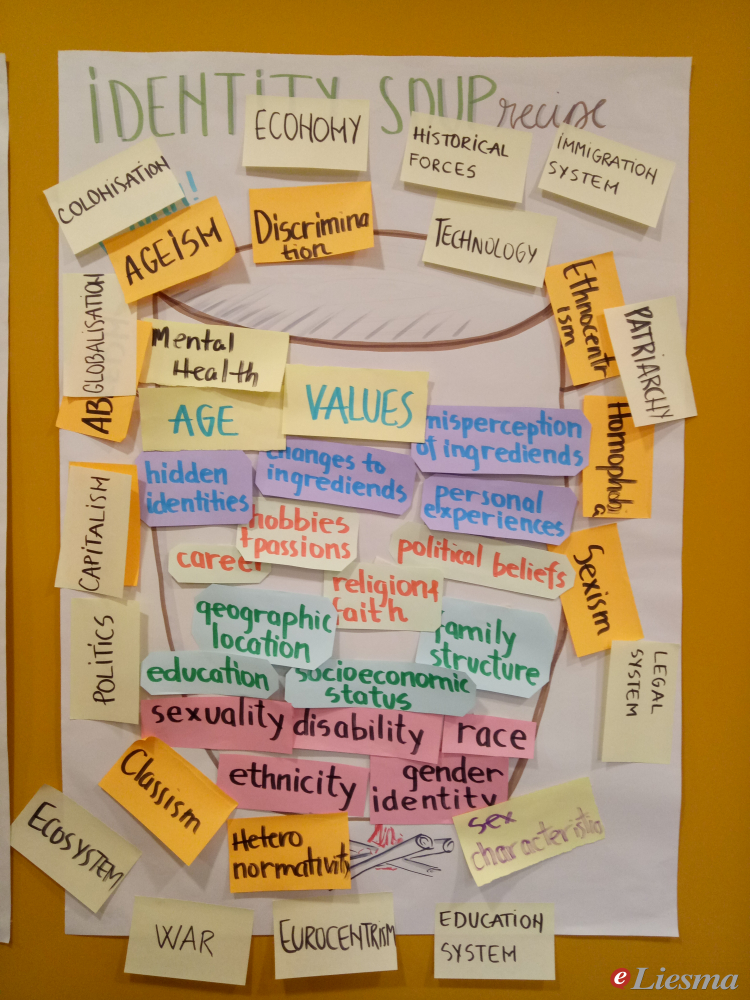 iDENTiTY SOUP recipe
ECONOMY
HISTORICAL
FORCES
IMMIGRATION
SYSTEM
COLONISATION
AGEISM
Discrimina
tion
TECHNOLOGY
Ethnocentr
ism
PATRIARCHY
GLOBALISATION
AB
Mental
Health
AGE
VALUES
misperception
of ingrediends
Homophobi
a
hidden
identities
changes to
ingrediends
personal
experiences
CAPITALISM
hobbies
+passions
career
political beliefs
religion+
faith
Sexism
geographic
location
family
structure
POLITICS
education
socioeconomic
status
LEGAL
SYSTEM
sexuality
disability
race
ethnicity
gender
identity
Classism
ECOSYSTEM
Hetero
normativity
sex
characteristics
WAR
EUROCENTRISM
EDUCATION
SYSTEM
e Liesma